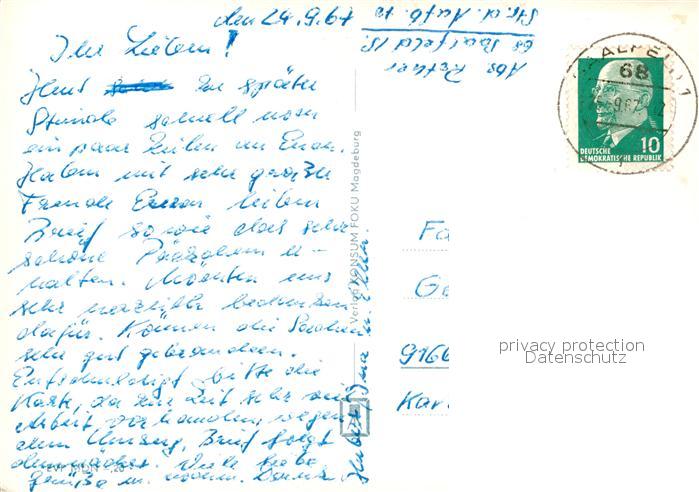 den 24.9.67
Ihr Lieben!
Heut zu später
Stunde schnell noch
ein paar Zeilen an Euch.
Haben mit sehr großer
Freude Euren lieben
Brief sowie das sehr
schöne Päckchen er-
halten. Möchten uns
sehr herzlich bedanken
dafür. Können die Sachen
sehr gut gebrauchen.
Entschuldigt bitte die
Karte, da zur Zeit sehr viel
Arbeit vorhanden, wegen
dem Umzug, Brief folgt
demnächst. Viele liebe
Grüße u.
Abs.
68 Saalfeld /S.
Str. d. Aufb.
Verlag KONSUM FOKU Magdeburg
68
10
DEUTSCHE
DEMOKRATISCHE REPUBLIK
Fa
Ge
9166
Kar
privacy protection
Datenschutz